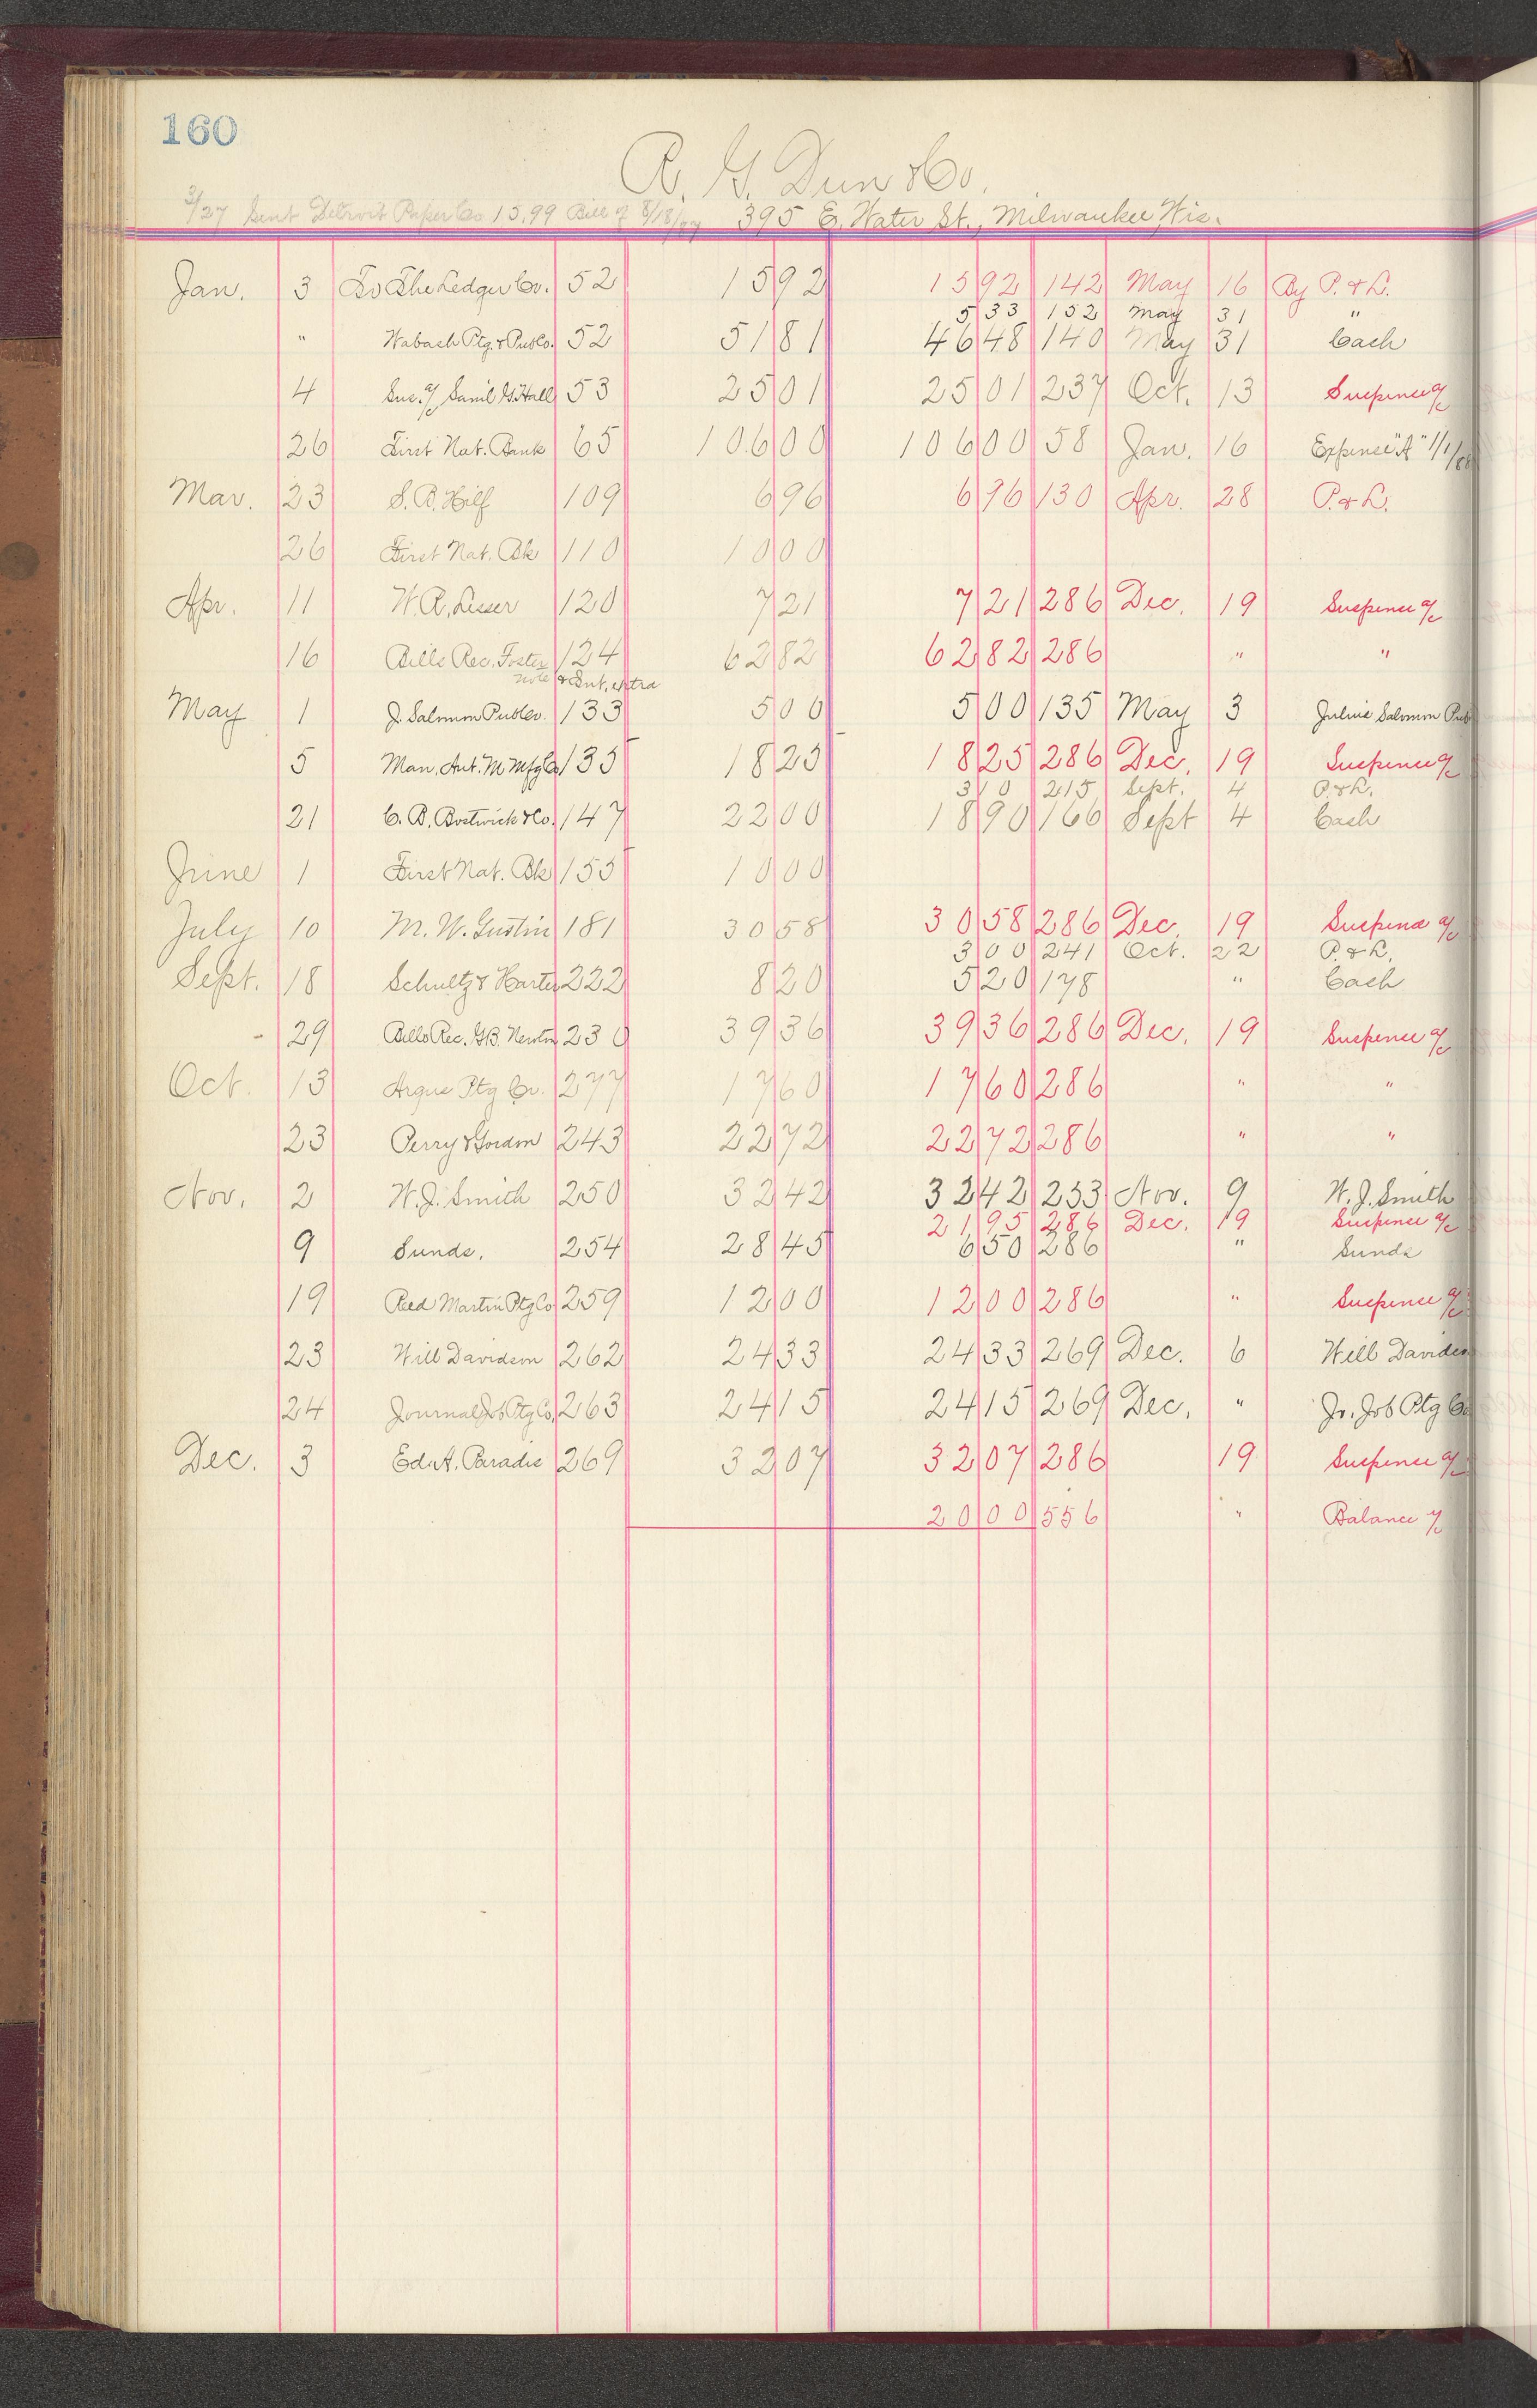 160
R. G. Dun & Co.
3/27 Sent Detroit Paper Co 15.99 Bill of 8/18/87 395 E. Water St., Milwaukee Wis.
Jan. 3 To The Ledger Co. 52 15 92 15 92 142 May 16 By P. & L.
5 33 152 May 31 "
" Wabash Ptg. & Pub Co. 52 51 81 46 48 140 May 31 Cash
4 Sus. a/c Saml G. Hall 53 25 01 25 01 237 Oct. 13 Suspense a/c
26 First Nat. Bank 65 106 00 106 00 58 Jan. 16 Expense "A" 1/1/88
Mar. 23 S. B. Hilf 109 6 96 6 96 130 Apr. 28 P. & L.
26 First Nat. Bk 110 10 00
Apr. 11 W. R. Lesser 120 7 21 7 21 286 Dec. 19 Suspense a/c
16 Bills Rec. Foster 124 62 82 62 82 286 " "
note & Int. extra
May 1 J. Salomon Pub Co. 133 5 00 5 00 135 May 3 Julius Salomon Pub
5 Man. Aut. M Mfg Co 135 18 25 18 25 286 Dec. 19 Suspense a/c
3 10 215 Sept. 4 P. & L.
21 C. B. Bostwick & Co. 147 22 00 18 90 166 Sept 4 Cash
June 1 First Nat. Bk 155 10 00
July 10 M. W. Gustin 181 30 58 30 58 286 Dec. 19 Suspense a/c
3 00 241 Oct. 22 P. & L.
Sept. 18 Schultz & Harter 222 8 20 5 20 178 " Cash
29 Bills Rec. G.B. Newton 230 39 36 39 36 286 Dec. 19 Suspense a/c
Oct. 13 Argus Ptg Co. 277 17 60 17 60 286 " "
23 Perry & Gordon 243 22 72 22 72 286 " "
Nov. 2 W. J. Smith 250 32 42 32 42 253 Nov. 9 W. J. Smith
21 95 286 Dec. 19 Suspense a/c
9 Sunds. 254 28 45 6 50 286 " Sunds
19 Reed Martin Ptg Co 259 12 00 12 00 286 " Suspense a/c
23 Will Davidson 262 24 33 24 33 269 Dec. 6 Will Davidson
24 Journal Job Ptg Co. 263 24 15 24 15 269 Dec. " Jr. Job Ptg Co
Dec. 3 Ed. A. Paradis 269 32 07 32 07 286 19 Suspense a/c
20 00 556 " Balance a/c